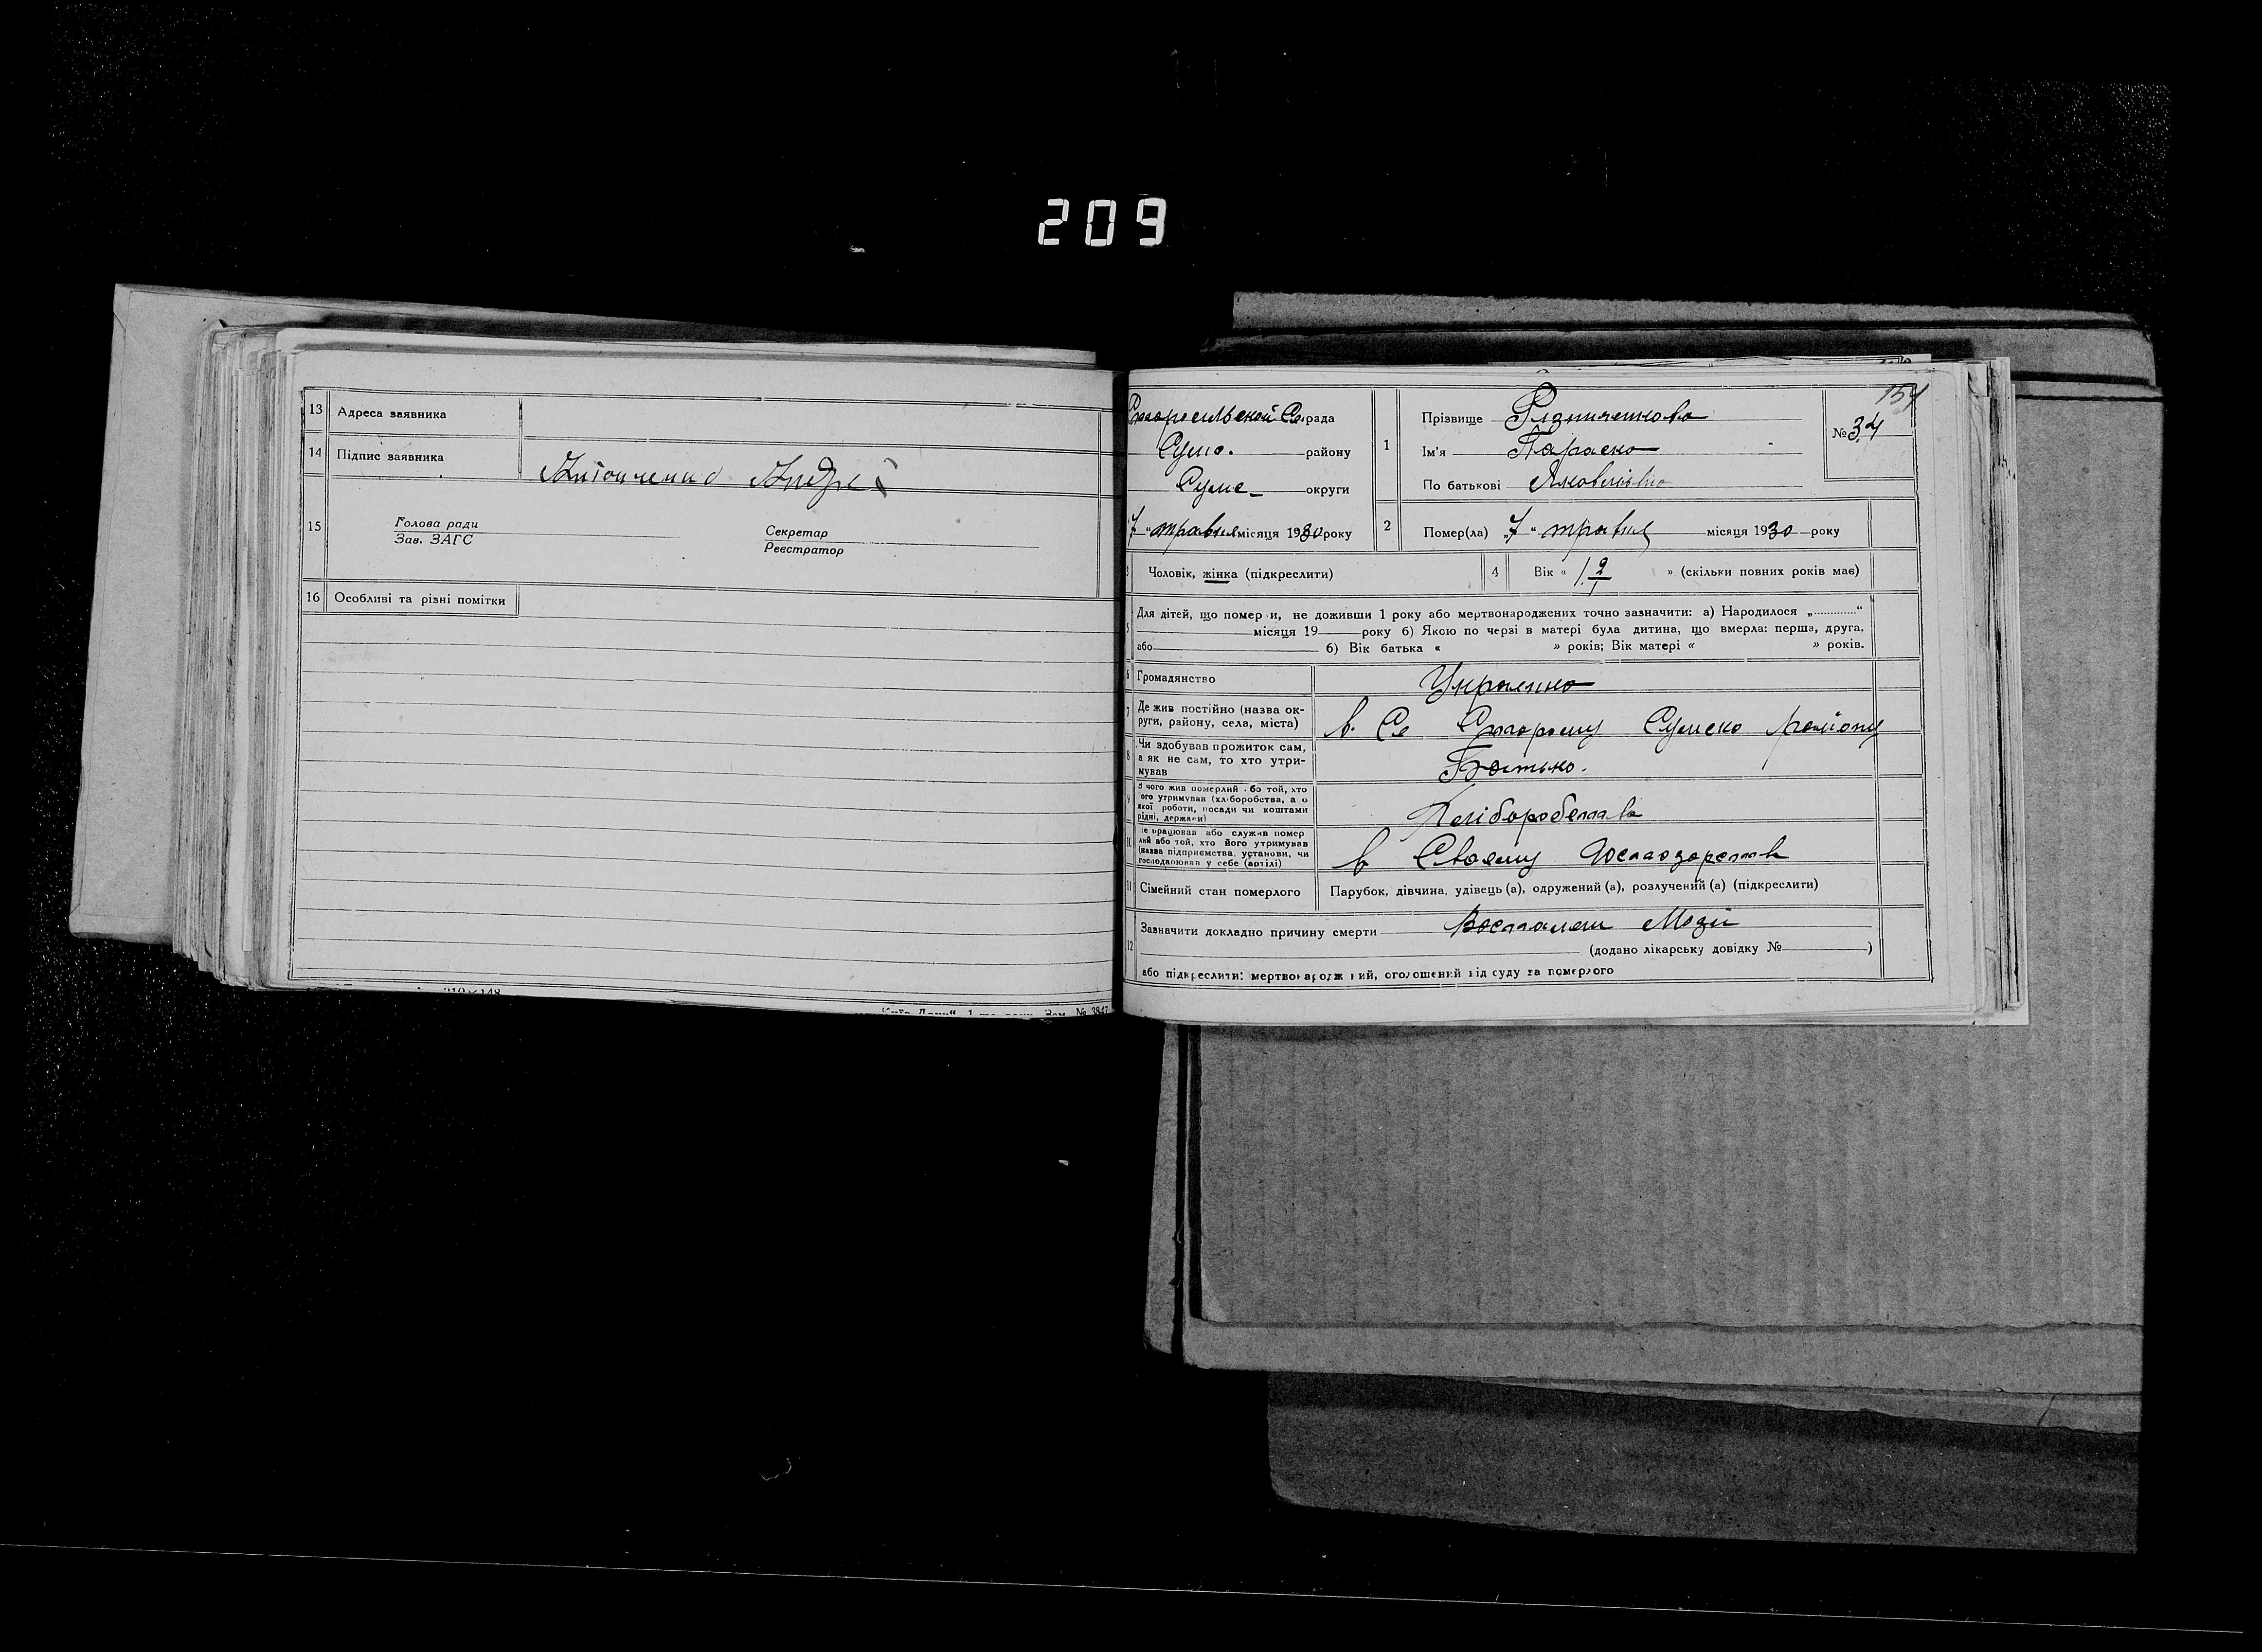 209
13 Адреса заявника
14 Підпис заявника
Антоненко Андрей
15 Голова ради
Зав. ЗАГС
Секретар
Реєстратор
16 Особливі та різні помітки
№ 3847
154
Старосільской Сел рада
Сумс. району
Сумс- округи
7 " травня місяця 1930 року
1 Прізвище Різниченкова
Ім'я Параска
По батькові Яковлівна
№ 34
2 Помер(ла) „7 " травня місяця 1930 року
3 Чоловік, жінка (підкреслити)
4 Вік « » (скільки повних років має)
5 Для дітей, що померли, не доживши 1 року або мертвонароджених точно зазначити: а) Народилося „.............“
місяця 19 року б) Якою по черзі в матері була дитина, що вмерла: перша, друга,
або б) Вік батька « » років; Вік матері « » років.
6 Громадянство Украінка
7 Де жив постійно (назва округи, району, села, міста) в. Се Старому Сумско району
8 Чи здобував прожиток сам,
а як не сам, то хто утримував
Батько.
9 З чого жив померлий або той, хто
його утримував (хліборобства, а о
якої роботи, посади чи коштами
рідні, держави)
Хліборобства
10 Де працював або служив померлий або той, хто його утримував
(назва підприємства, установи, чи
господарював у себе (артілі)
в Своему Господарстві
11 Сімейний стан померлого Парубок, дівчина, удівець (а), одружений (а), розлучений (а) (підкреслити)
12 Зазначити докладно причину смерти Воспален Мозги
(додано лікарську довідку № )
або підкреслити: мертвонароджений, оголошений від суду за померлого